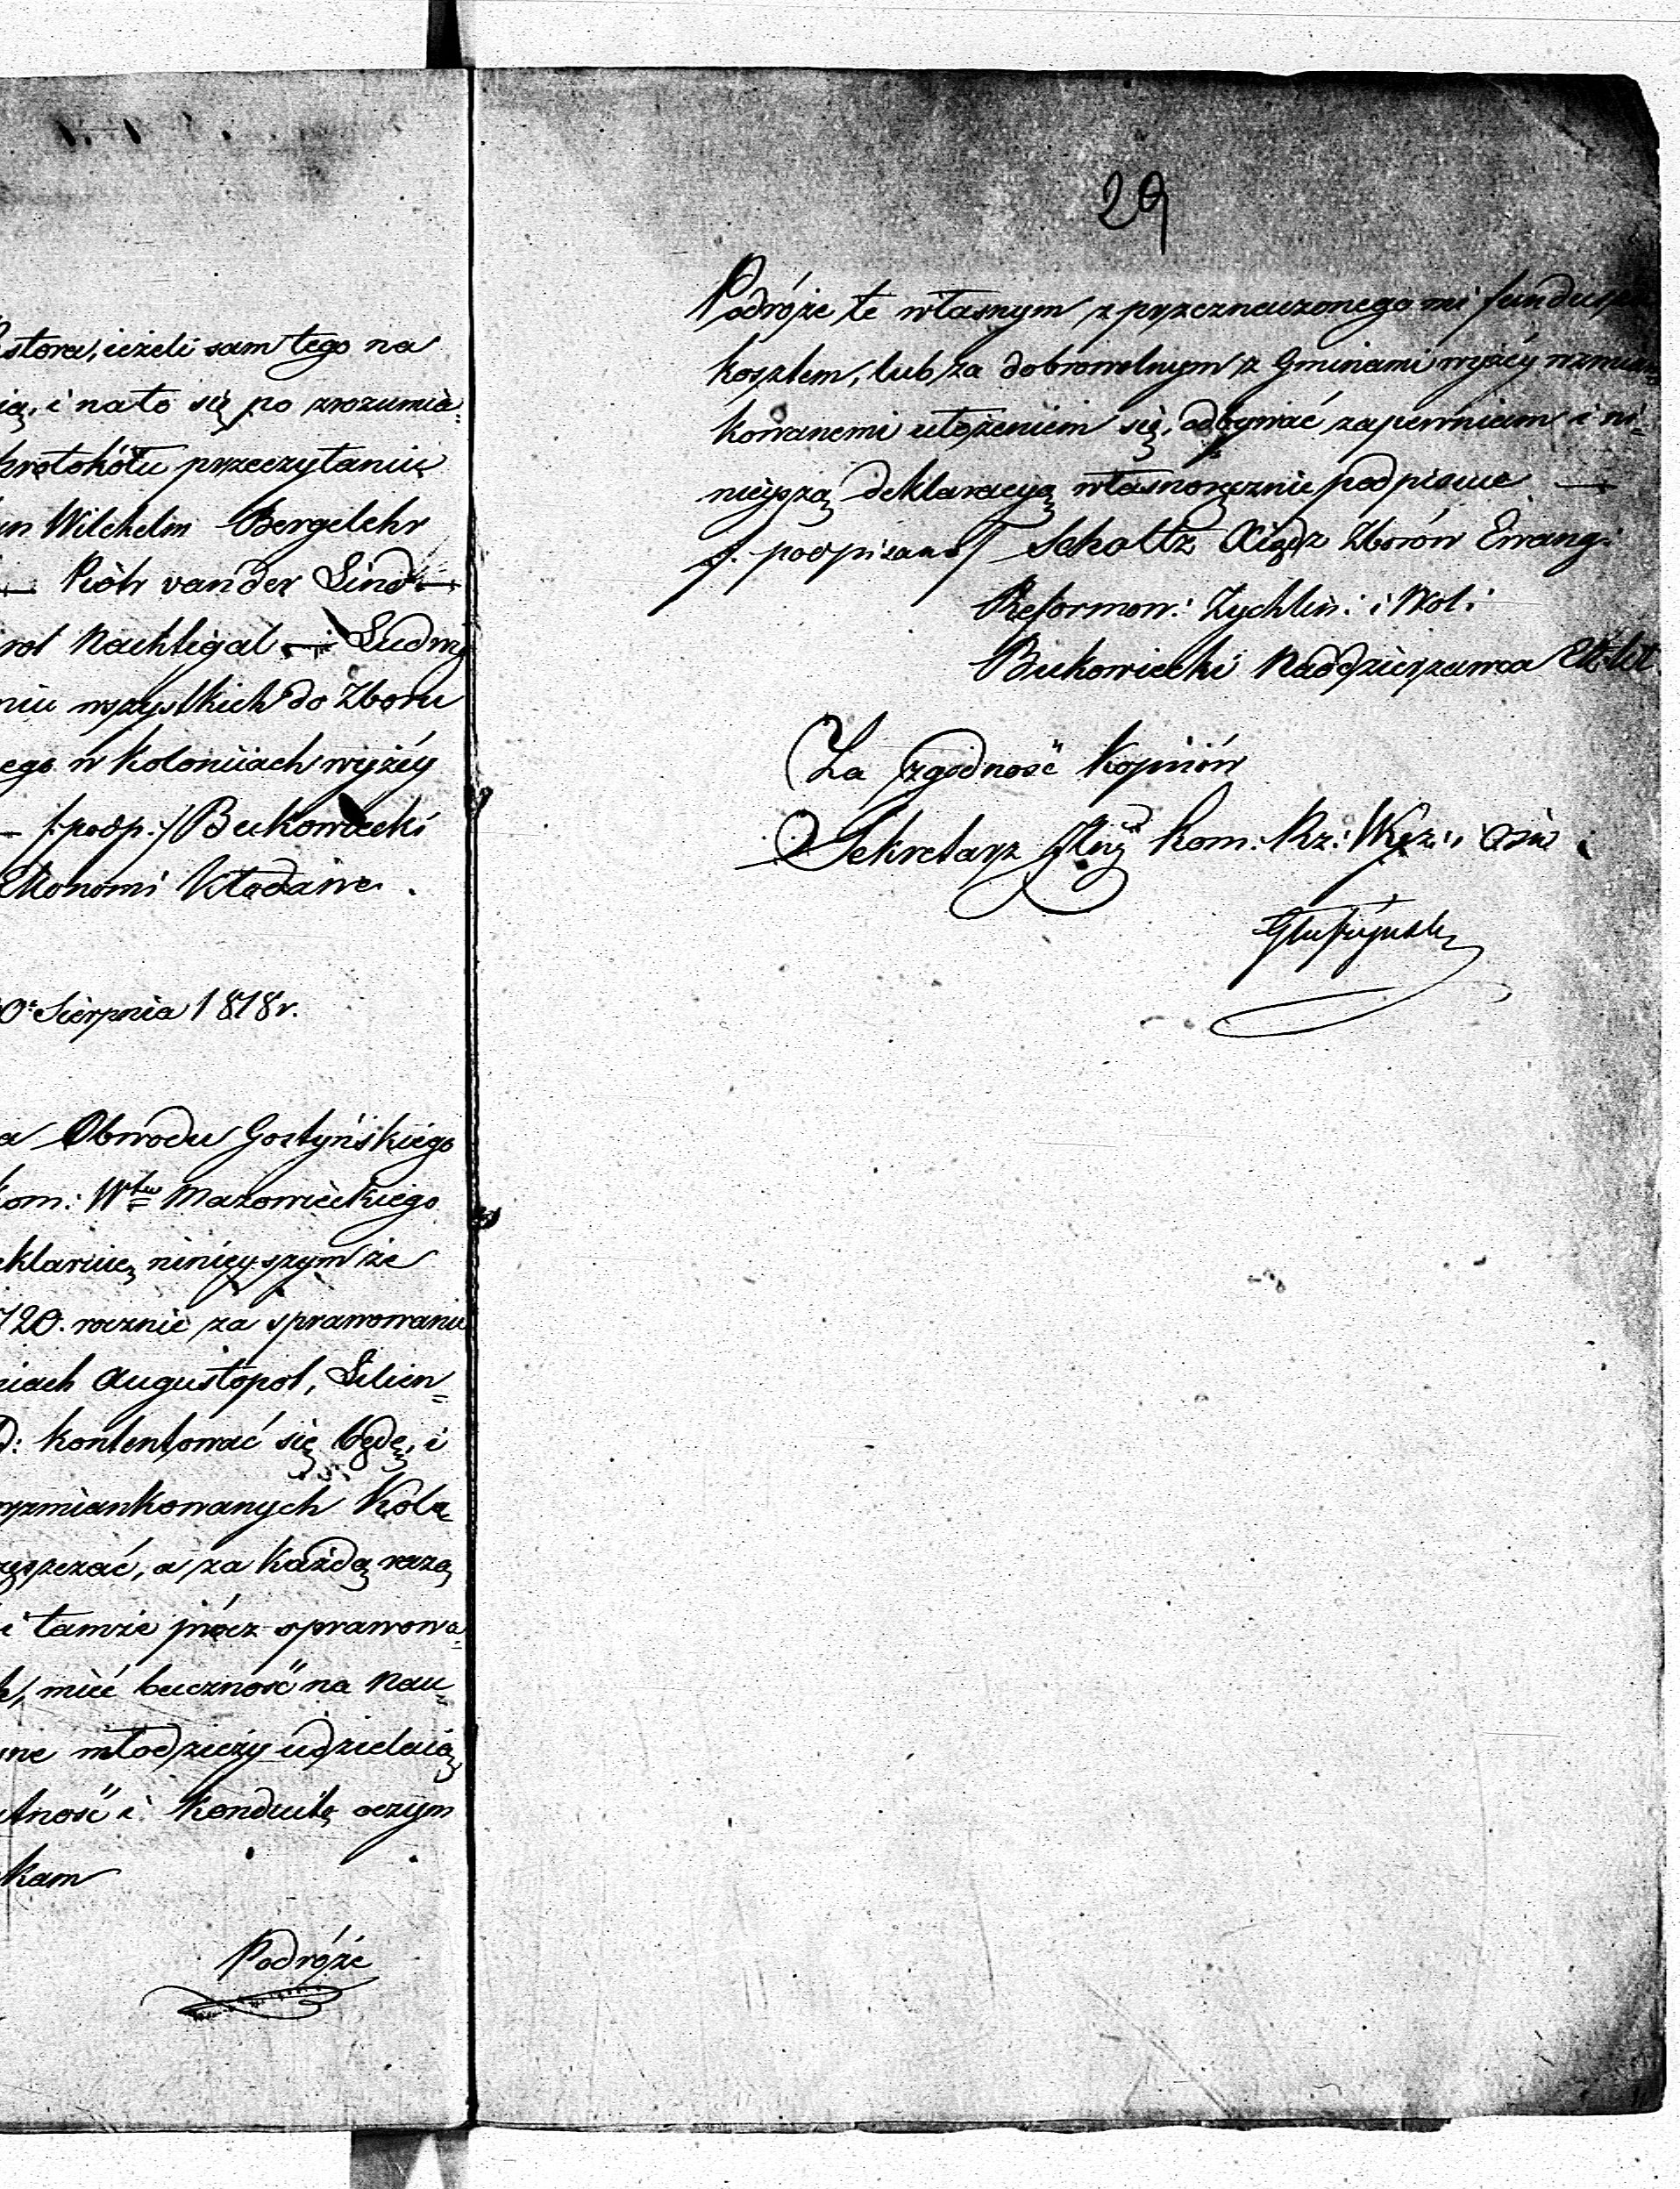 stora, ieżeli sam tego na
ią, i na to się po zrozumia-
protokółu przeczytaniu
Wilchelm Bergelehr
— Piótr vander Lind —
rol Nachtigal — Ludwi
niu wszystkich do Zboru
ego w Koloniiach wyżéy
— /:podp:/ Bukowiecki
Ekonomi Kłodawa.
0: Sierpnia 1818 r.
a Obwodu Gostyńskiego
Kom: Wtwa Mazowieckiego
eklaruię ninieyszym że
720. rocznie za sprawowanie
niach Augustopol, Lilien=
D: kontentować się będę, i
wzmiankowanych Kolo
szczać, a za każdą razą
i tamże prócz sprawowa=
mieć baczność na Nau=
ne młodzieży udzielaią
tność i Konduitę oczym
kam
Podróże
29
Podróże te własnym z przeznaczonego mi fundusz
kosztem, lub za dobrowolnym z Gminami wyżéy wzmian
kowanemi ułożeniem się, odbywać zapewniam i ni=
nieyszą deklaracyą własnoręcznie podpisuie —
/:podpisano/ Scholtz Xiądz Zborów Ewang:
Reformow: Zychlin: i Wol:
Bukowiecki Naddzierzawca
Za zgodność Kopiiów
Sekretarz Kom: Rz: W i Ośw: